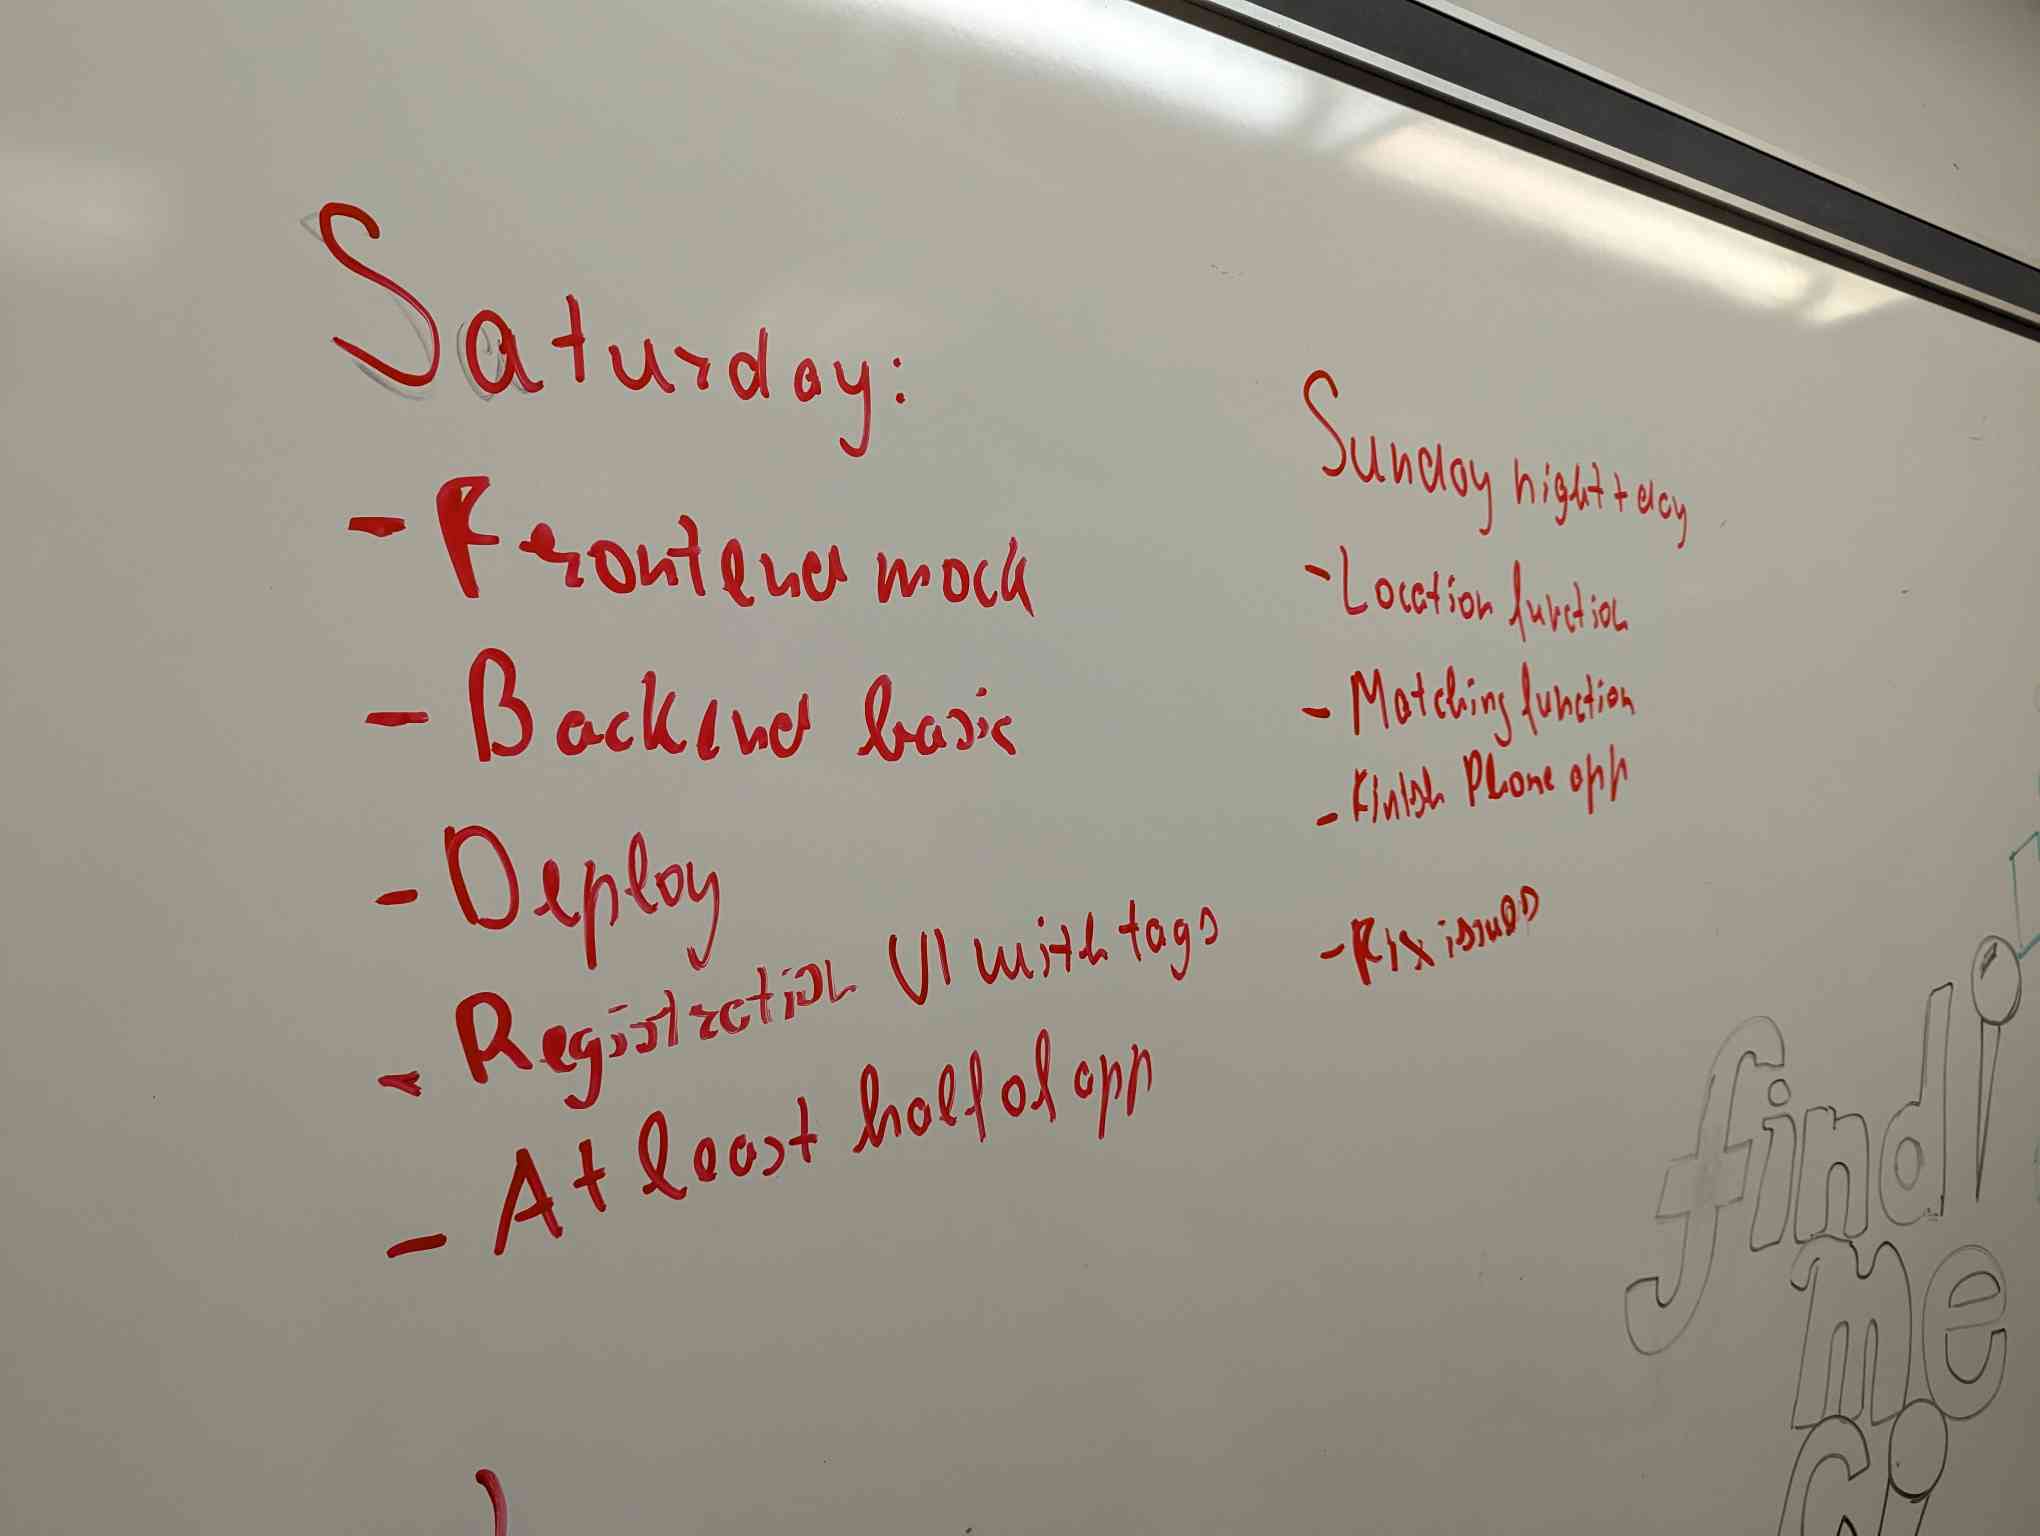 Saturday:
- Frontend mock
- Backend basic
- Deploy
- Registration UI with tags
- At least half of app
Sunday night + day
- Location function
- Matching function
- Finish Phone app
- Fix issues
find
me